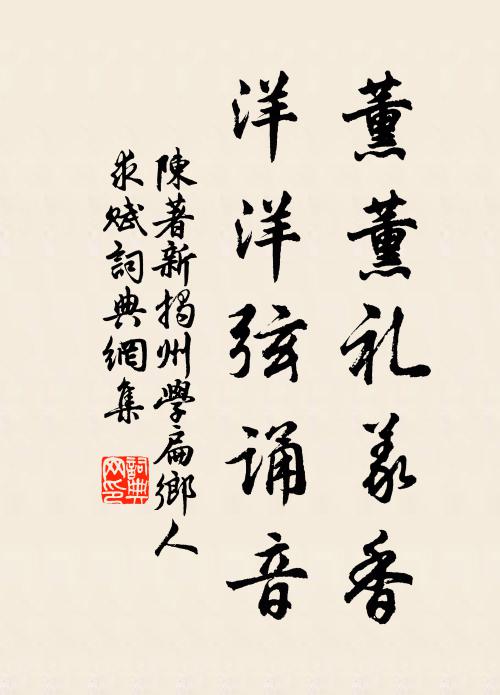 薰薰礼义香
洋洋弦诵音
陳著新揭州學扁鄉人
求賦詞典網集
詞典网印